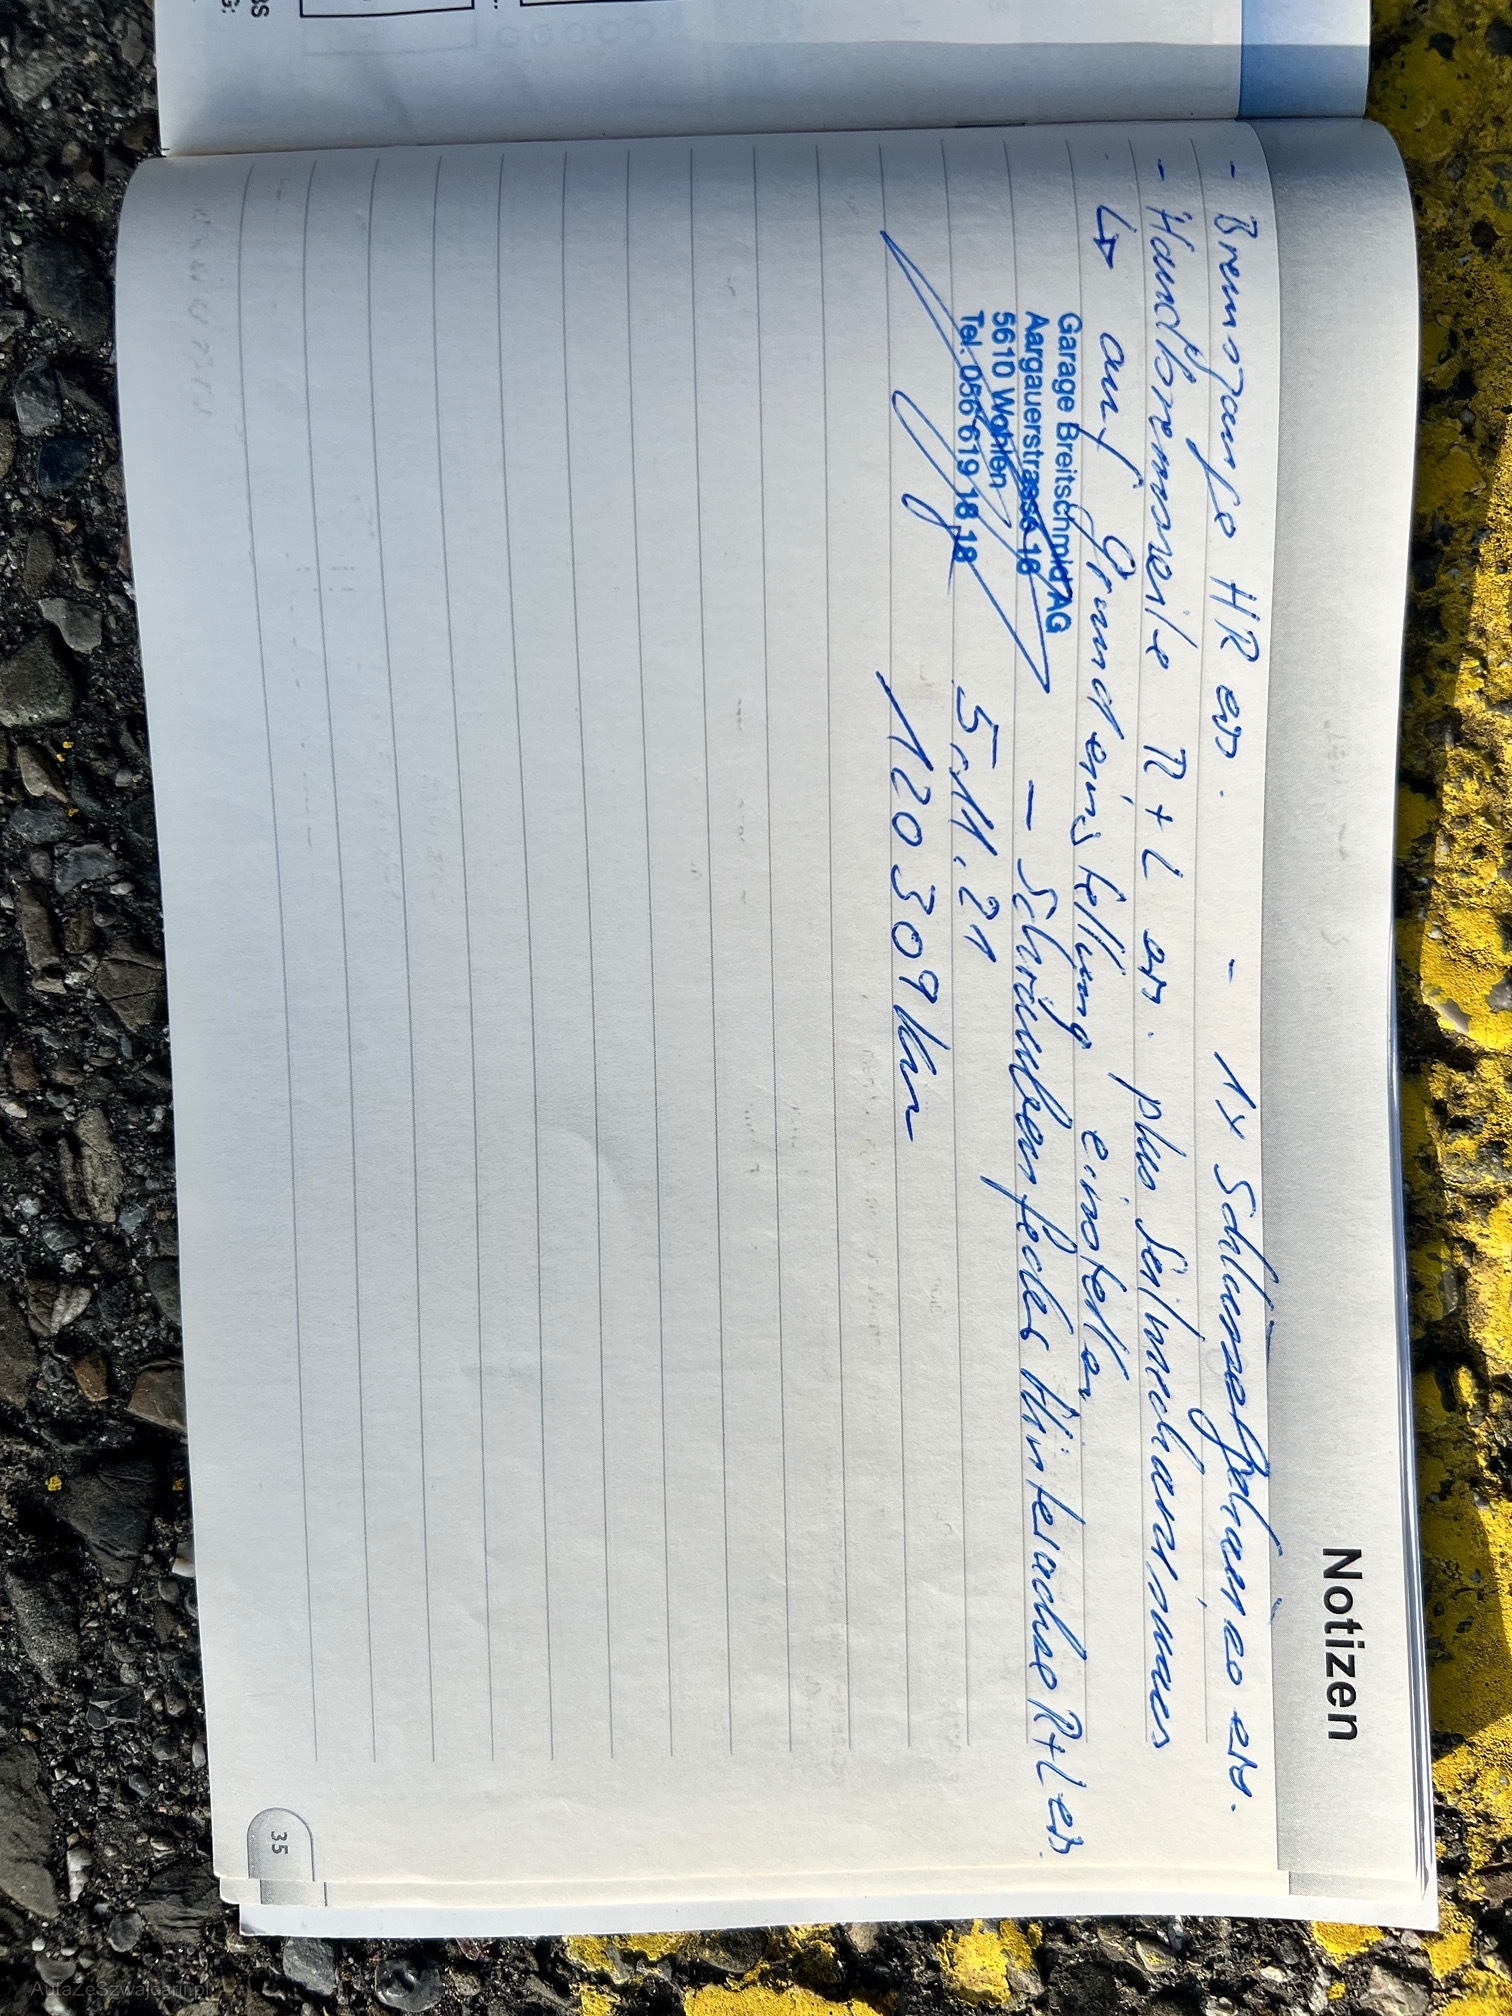 Notizen
- Bremszange HR ers. - 1x Schlusszeichen
- Handbremsseile R + L ers. plus Seilmechanismus
↳ auf Grundeinstellung einstellen
- Schraubenfeder Hinterachse R+L ers.
Garage Breitschmid AG
Aargauerstrasse 18
5610 Wohlen
Tel. 056 619 18 18
5.11.21
120309 km
35
AutaZeSzwajcarii.pl